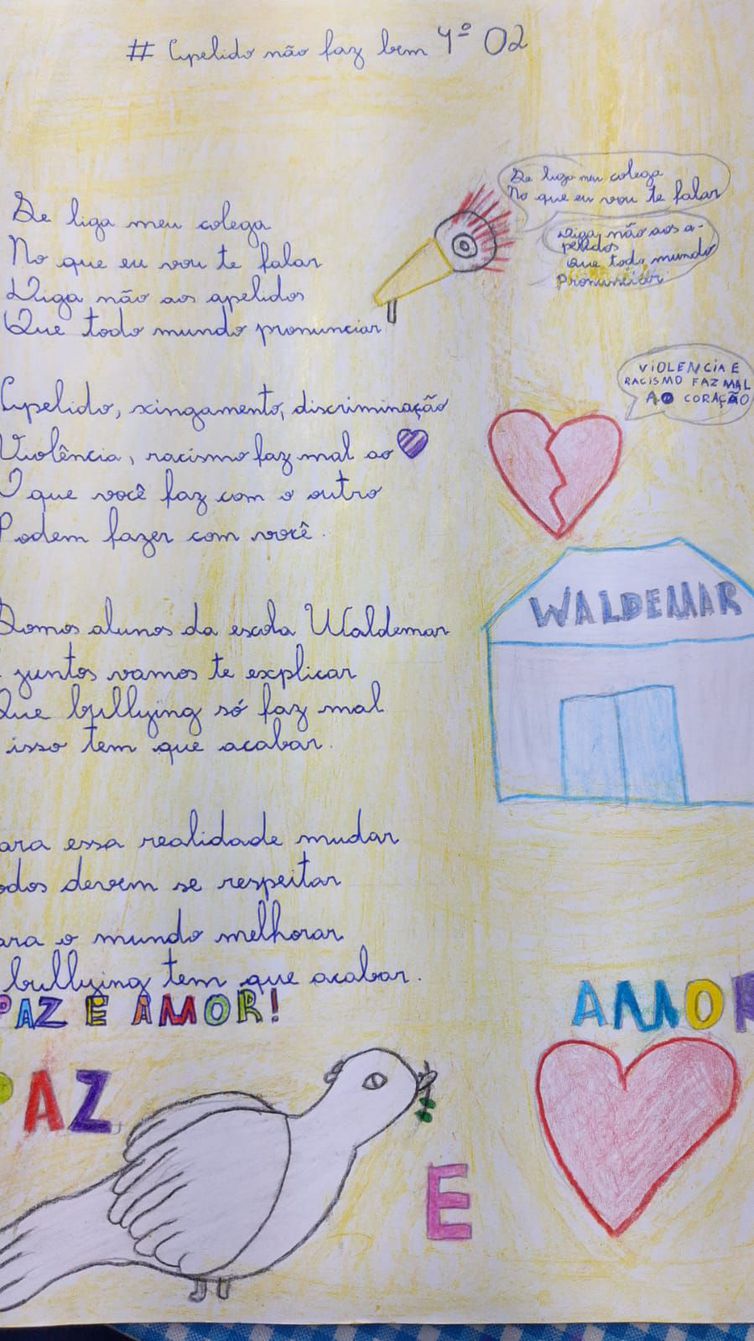 # Apelido não faz bem 4º 02
Se liga meu colega
No que eu vou te falar
Diga não aos apelidos
Que todo mundo pronunciar
Se liga meu colega
No que eu vou te falar
Diga não aos a-
pelidos
Que todo mundo
Pronunciar
Apelido, xingamento, discriminação
Violência, racismo faz mal ao
O que você faz com o outro
Podem fazer com você.
VIOLENCIA E
RACISMO FAZ MAL
AO CORAÇÃO
Somos alunos da escola Waldemar
juntos vamos te explicar
Que bullying só faz mal
isso tem que acabar.
WALDEMAR
ara essa realidade mudar
odos devem se respeitar
ara o mundo melhorar
bullying tem que acabar.
PAZ E AMOR!
PAZ
E
AMOR